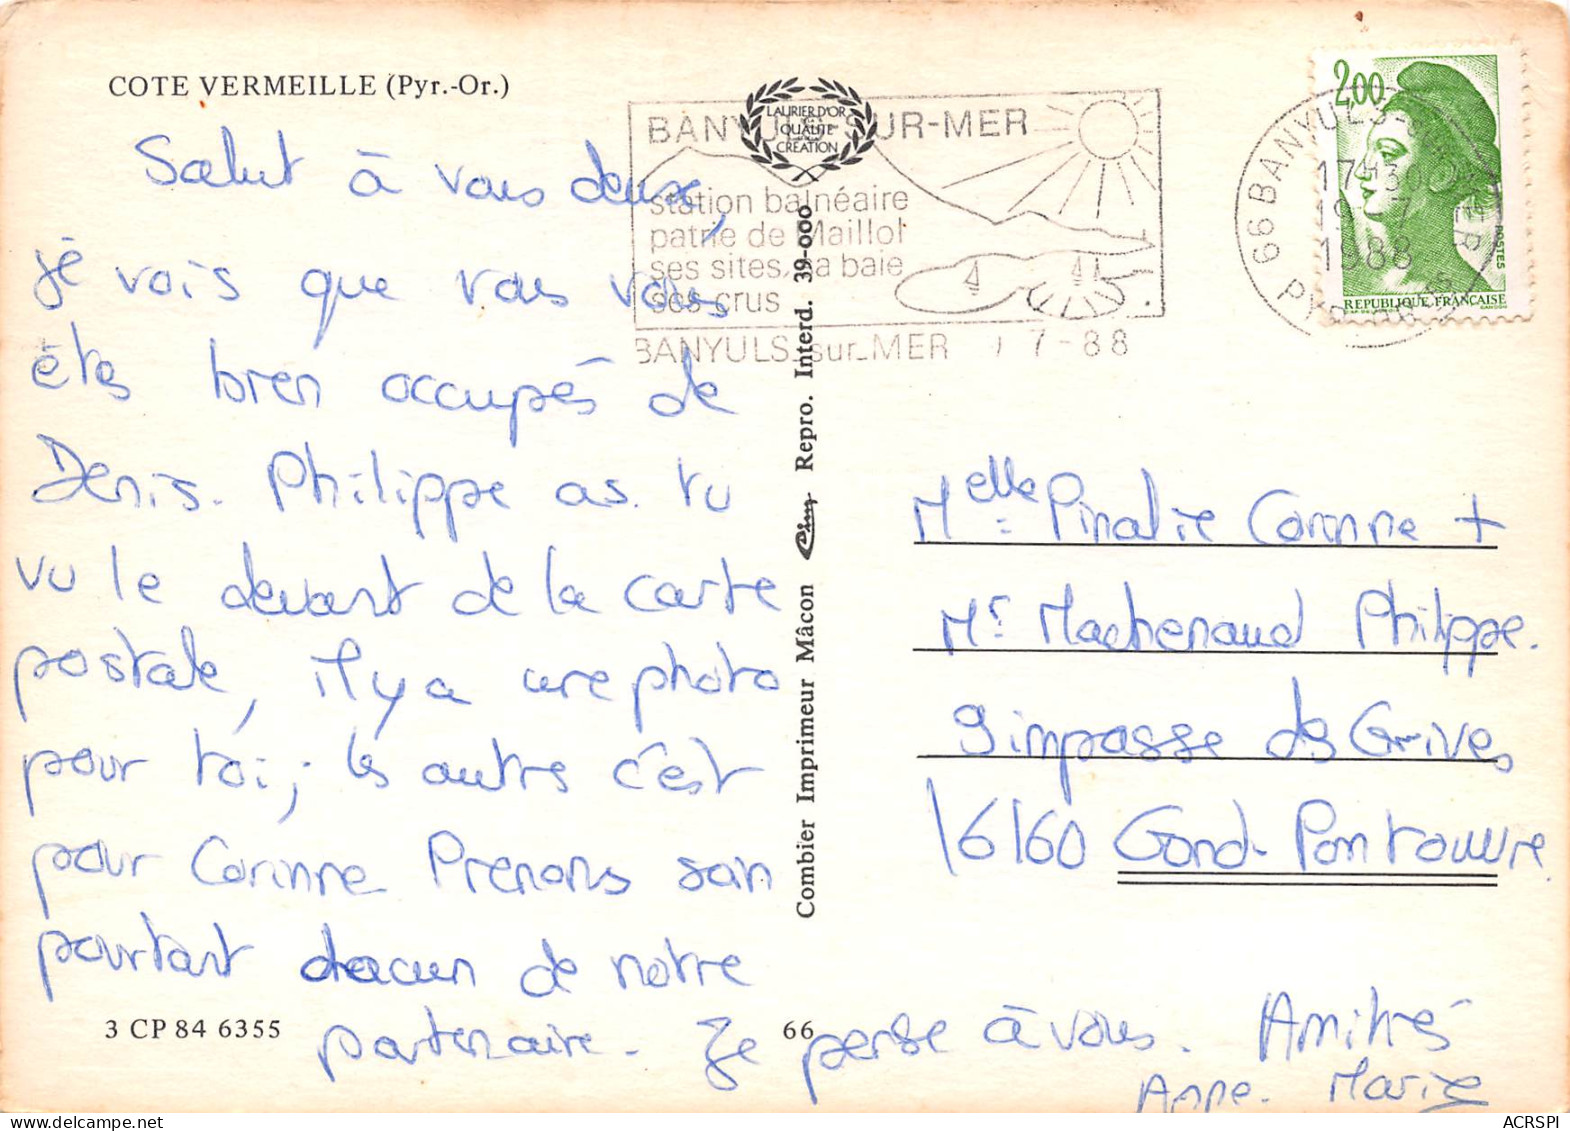 COTE VERMEILLE (Pyr.-Or.)
Salut à vous deux,
je vois que vous vous
êtes bien occupés de
Denis. Philippe as. tu
vu le devant de la carte
postale, il y a une photo
pour toi, ; les autre c'est
pour Corinne Prenons soin
pourtant chacun de notre
partenaire. Je pense à vous. Amitiés
Anne. Marie
3 CP 84 6355
66
LAURIER D'OR
QUALITE
CREATION
BANYULS-SUR-MER
station balnéaire
patrie de Maillol
ses sites, sa baie
ses crus
BANYULS-sur-MER 7-88
66 BANYULS-SUR-MER
17H30
19-7
1988
2,00
POSTES
REPUBLIQUE FRANÇAISE
Combier Imprimeur Mâcon Cim Repro. Interd. 39-000
Melle Pinalie Corinne +
Mr Machenaud Philippe.
9 impasse des Grives
16160 Gond-Pontouvre.
ACRSPI